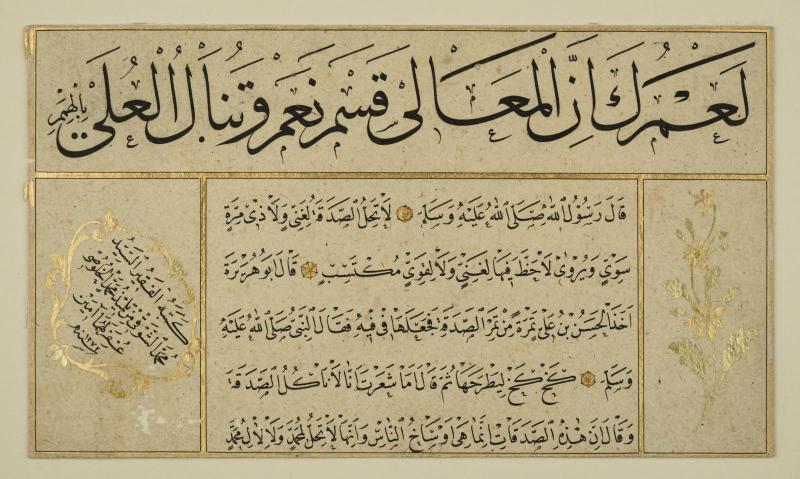 لَعَمْرُكَ اِنَّ الْمَعَالِى قَسْمٌ نَعَمْ وَتُنَالُ الْعُلَى بِالْهِمَمْ
قَالَ رَسُولُ اللهِ صَلَّى اللهُ عَلَيْهِ وَسَلَّمَ لَا تَحِلُّ الصَّدَقَةُ لِغَنِيٍّ وَلَا ذِى مِرَّةٍ
سَوِيٍّ وَيُرْوٰى لَا حَظَّ فِيهَا لِغَنِيٍّ وَلَا لِقَوِيٍّ مُكْتَسِبٍ قَالَ اَبُو هُرَيْرَةَ
اَخَذَ الْحَسَنُ بْنُ عَلِيٍّ تَمْرَةً مِنْ تَمْرِ الصَّدَقَةِ فَجَعَلَهَا فِى فِيهِ فَقَالَ النَّبِيُّ صَلَّى اللهُ عَلَيْهِ
وَسَلَّمَ كَخْ كَخْ لِيَطْرَحَهَا ثُمَّ قَالَ اَمَا شَعَرْتَ اَنَّا لَا نَأْكُلُ الصَّدَقَةَ
وَقَالَ اِنَّ هٰذِهِ الصَّدَقَاتِ اِنَّمَا هِىَ اَوْسَاخُ النَّاسِ وَاِنَّهَا لَا تَحِلُّ لِمُحَمَّدٍ وَلَا لِاٰلِ مُحَمَّدٍ
كتبه الفقير السيد
محمد الشوقى من تلاميذ محمد خلوصى
غفر لهما امين